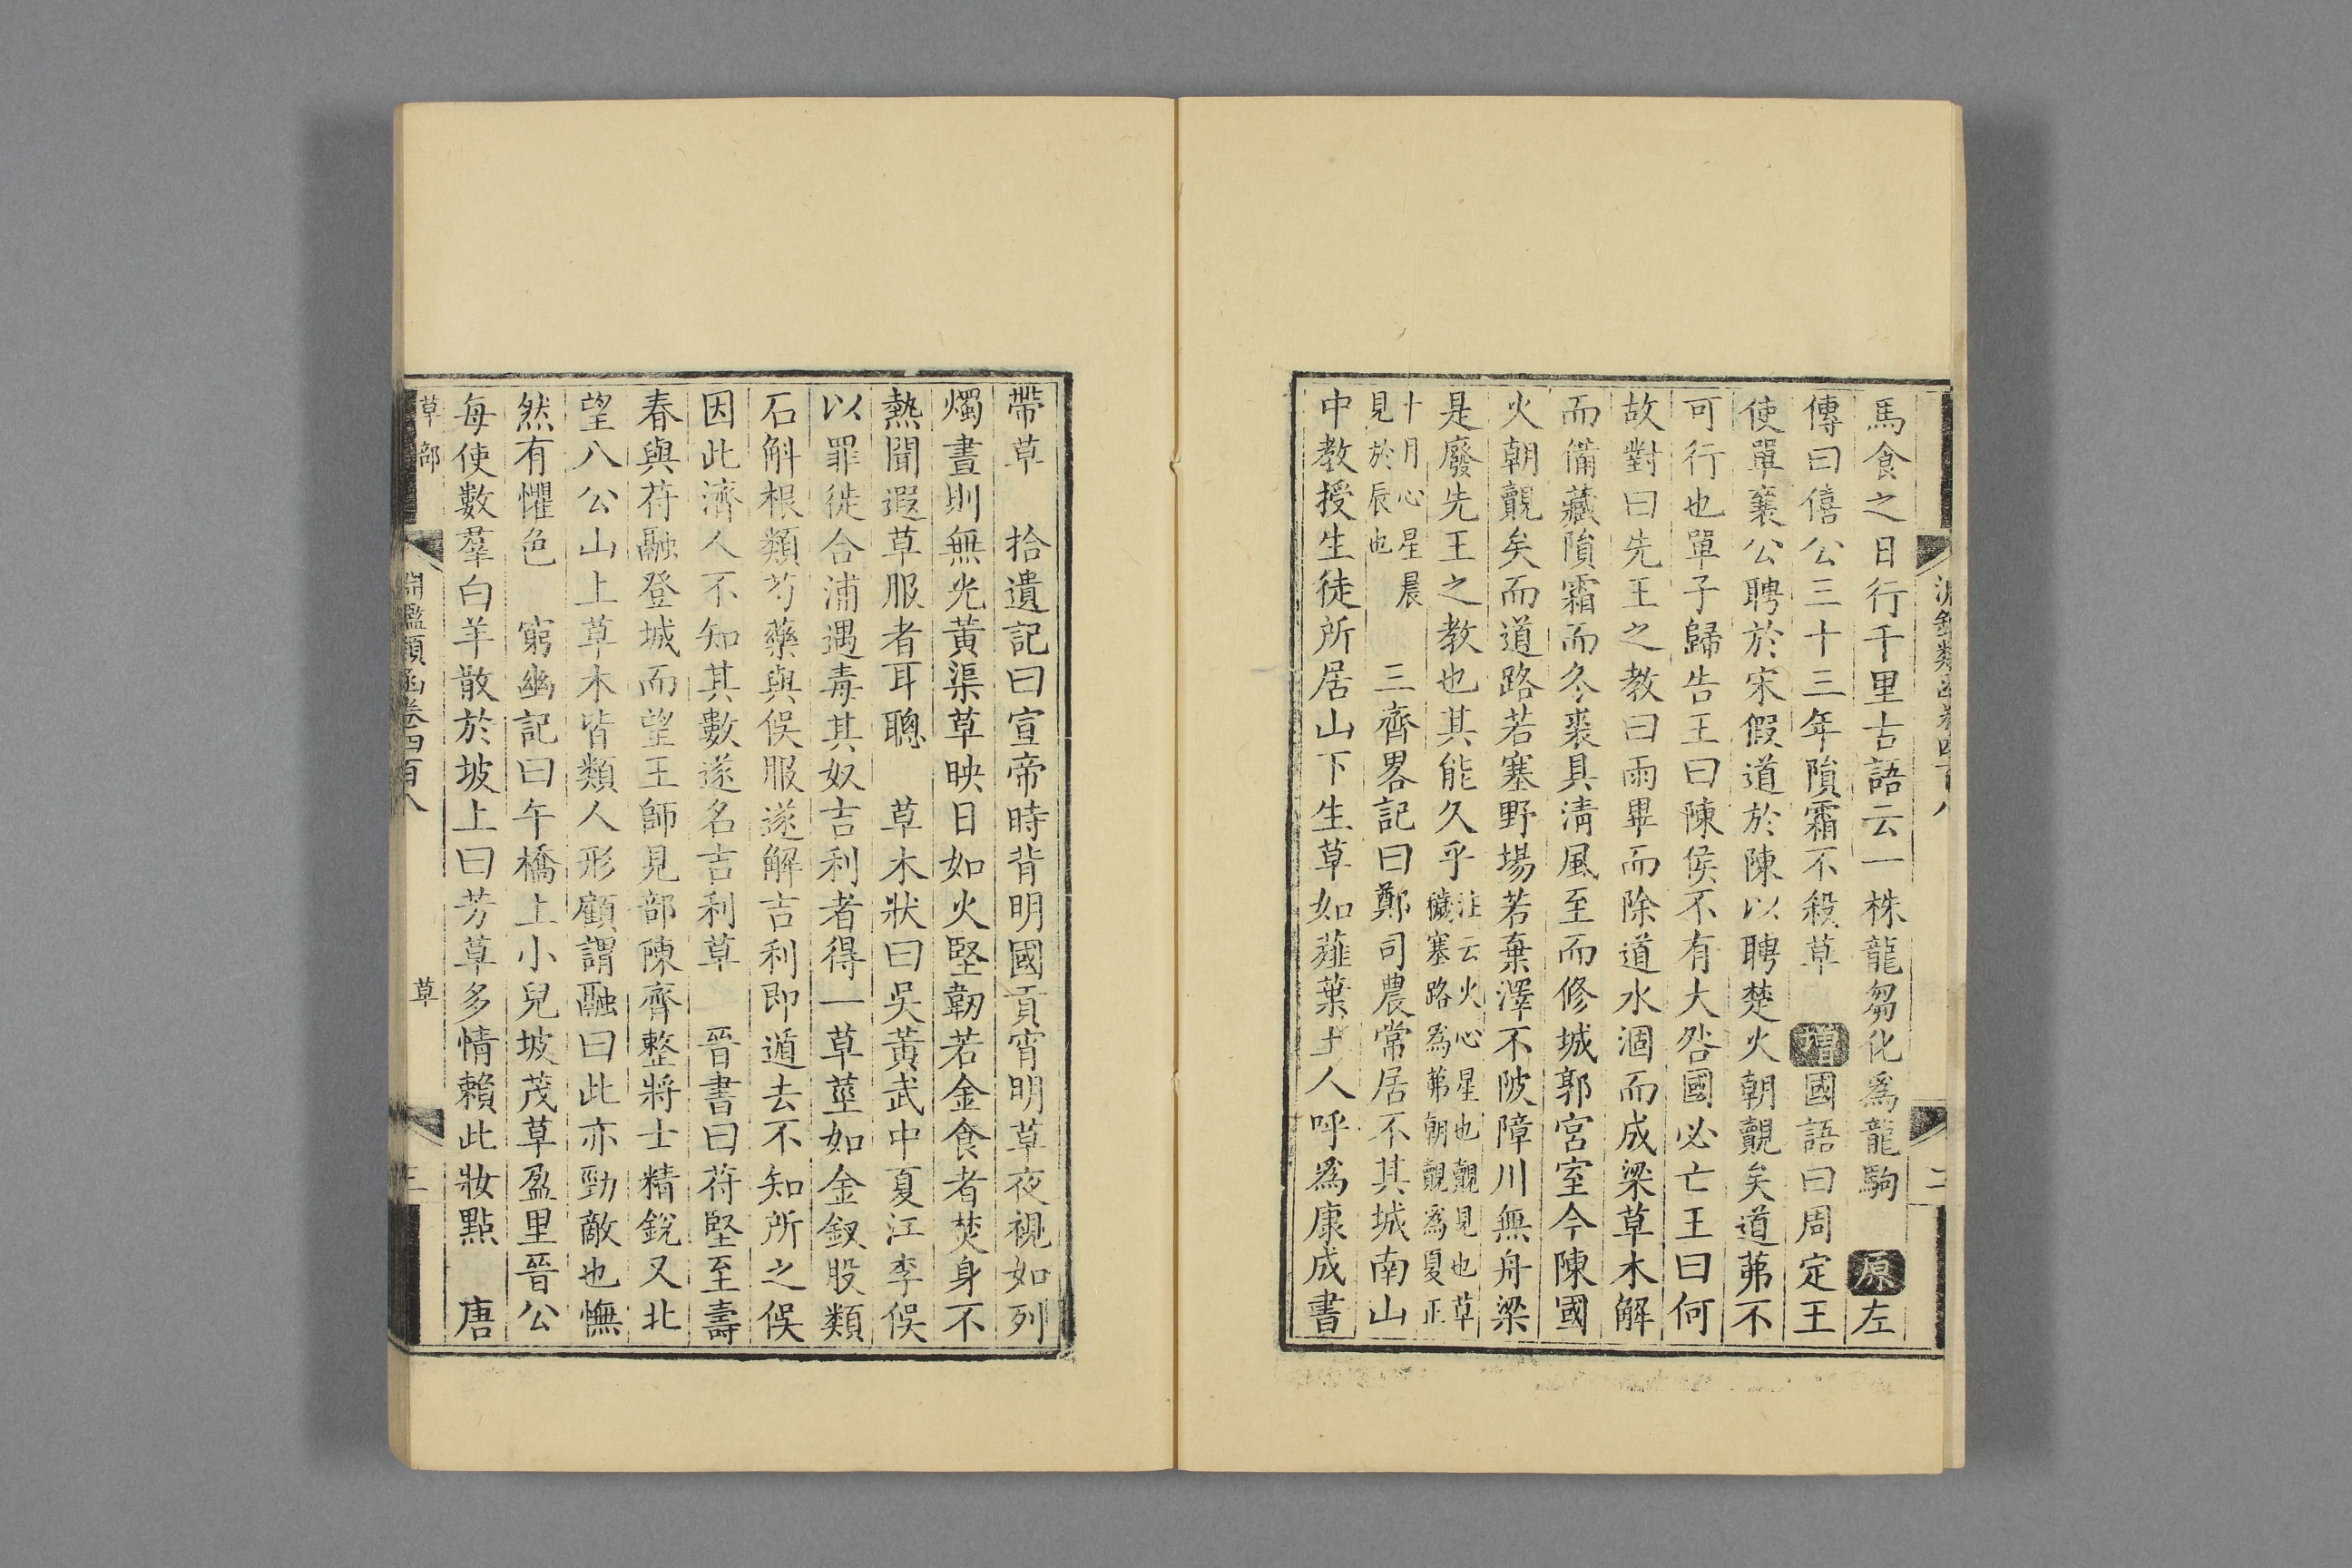 馬食之日行千里古語云一株龍芻化爲龍駒 原左
傳曰僖公三十三年隕霜不殺草 增國語曰周定王
使單襄公聘於宋假道於陳以聘楚火朝覿矣道茀不
可行也單子歸告王曰陳侯不有大咎國必亡王曰何
故對曰先王之教曰雨畢而除道水涸而成梁草木解
而備藏隕霜而冬裘具淸風至而修城郭宮室今陳國
火朝覿矣而道路若塞野場若棄澤不陂障川無舟梁
是廢先王之教也其能久乎
注云火心星也覿見也草
穢塞路爲茀朝覿爲夏正
十月心星晨
見於辰也
三齊畧記曰鄭司農常居不其城南山
中教授生徒所居山下生草如薤葉土人呼爲康成書
二
帶草 拾遺記曰宣帝時背明國貢宵明草夜視如列
燭晝則無光黃渠草映日如火堅韌若金食者焚身不
熱聞遐草服者耳聰 草木狀曰吳黃武中夏江李俁
以罪徙合浦遇毒其奴吉利者得一草莖如金釵股類
石斛根類芍藥與俁服遂解吉利即遁去不知所之俁
因此濟人不知其數遂名吉利草 晉書曰苻堅至壽
春與苻融登城而望王師見部陳齊整將士精銳又北
望八公山上草木皆類人形顧謂融曰此亦勁敵也憮
然有懼色 窮幽記曰午橋上小兒坡茂草盈里晉公
每使數羣白羊散於坡上曰芳草多情賴此妝點 唐
草部
淵鑑類函卷四百八
草
三